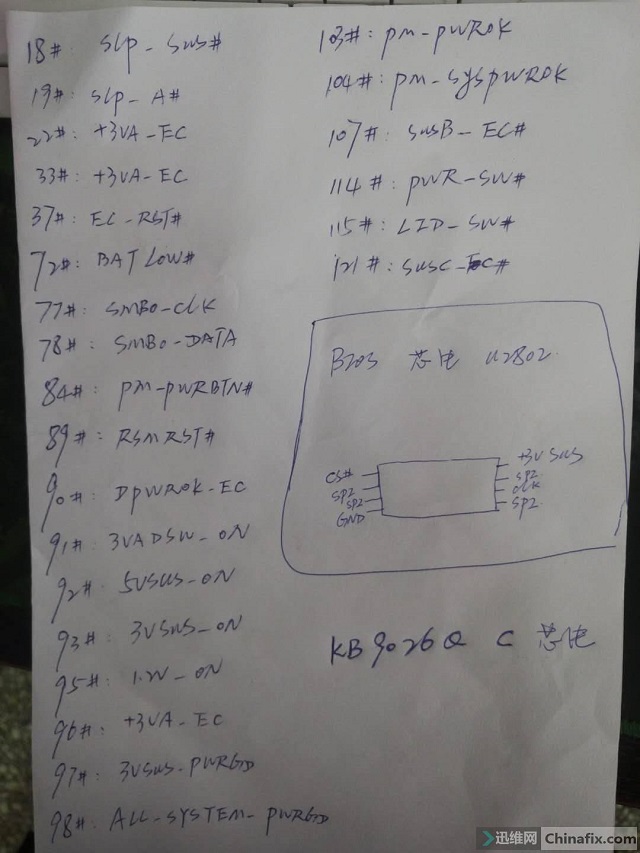 18#: SLP-SUS#
19#: SLP-A#
22#: +3VA-EC
33#: +3VA-EC
37#: EC-RST#
72#: BAT LOW#
77#: SMB0-CLK
78#: SMB0-DATA
84#: PM-PWRBTN#
89#: RSMRST#
90#: DPWROK-EC
91#: 3VADSW-ON
92#: 5VSUS-ON
93#: 3VSUS-ON
95#: 1.2V-ON
96#: +3VA-EC
97#: 3VSUS-PWRGD
98#: ALL-SYSTEM-PWRGD
103#: PM-PWROK
104#: PM-SYSPWROK
107#: SUSB-EC#
114#: PWR-SW#
115#: LID-SW#
121#: SUSC-EC#
BIOS 芯片 U2802
CS# +3VSUS
SPI SPI
SPI CLK
GND SPI
KB9026Q C 芯片
迅维网 Chinafix.com